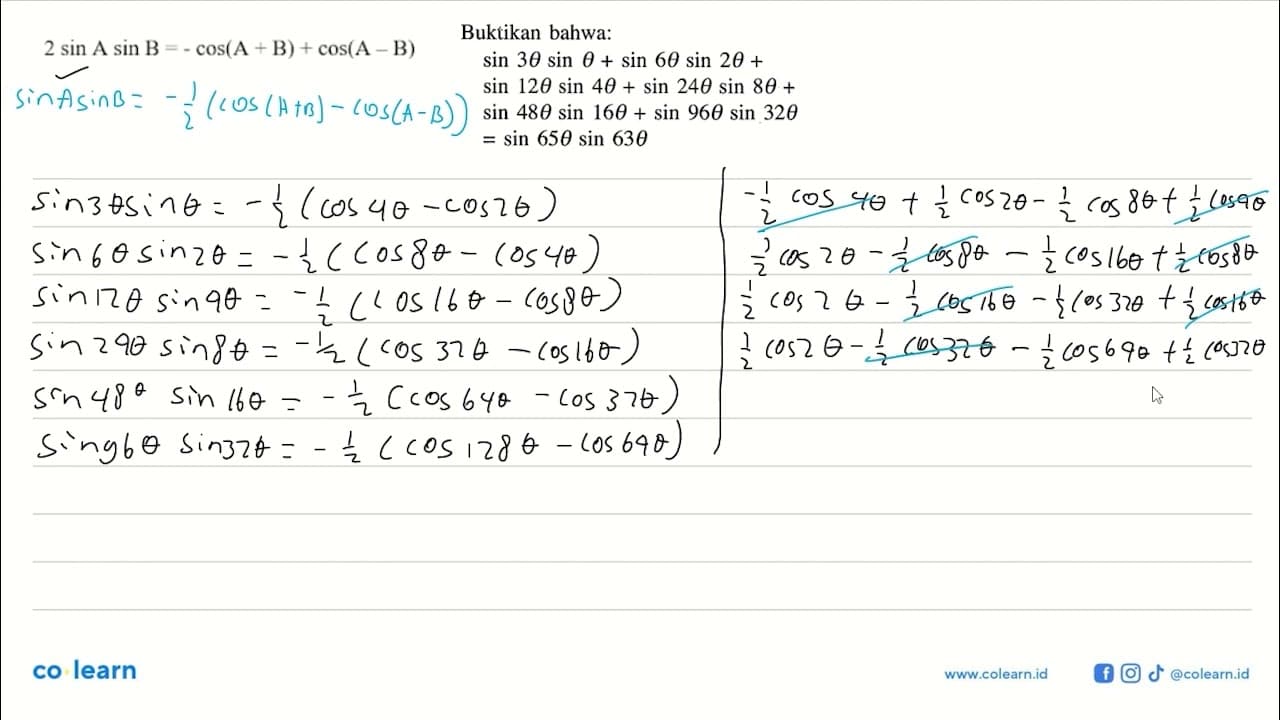 2 sin A sin B = - cos(A + B) + cos(A – B)
sinAsinB = -1/2 (cos(A+B) - cos(A-B))
Buktikan bahwa:
sin 3θ sin θ + sin 6θ sin 2θ +
sin 12θ sin 4θ + sin 24θ sin 8θ +
sin 48θ sin 16θ + sin 96θ sin 32θ
= sin 65θ sin 63θ
sin3θsinθ = -1/2 (cos4θ - cos2θ)
sin6θsin2θ = -1/2 (cos8θ - cos4θ)
sin12θ sin4θ = -1/2 (cos16θ - cos8θ)
sin24θ sin8θ = -1/2 (cos32θ - cos16θ)
sin48θ sin16θ = -1/2 (cos64θ - cos32θ)
sin96θ sin32θ = -1/2 (cos128θ - cos64θ)
-1/2 cos 4θ + 1/2 cos2θ - 1/2 cos8θ + 1/2 cos4θ
1/2 cos2θ - 1/2 cos8θ - 1/2 cos16θ + 1/2 cos8θ
1/2 cos2θ - 1/2 cos16θ - 1/2 cos32θ + 1/2 cos16θ
1/2 cos2θ - 1/2 cos32θ - 1/2 cos64θ + 1/2 cos32θ
co learn
www.colearn.id
@colearn.id